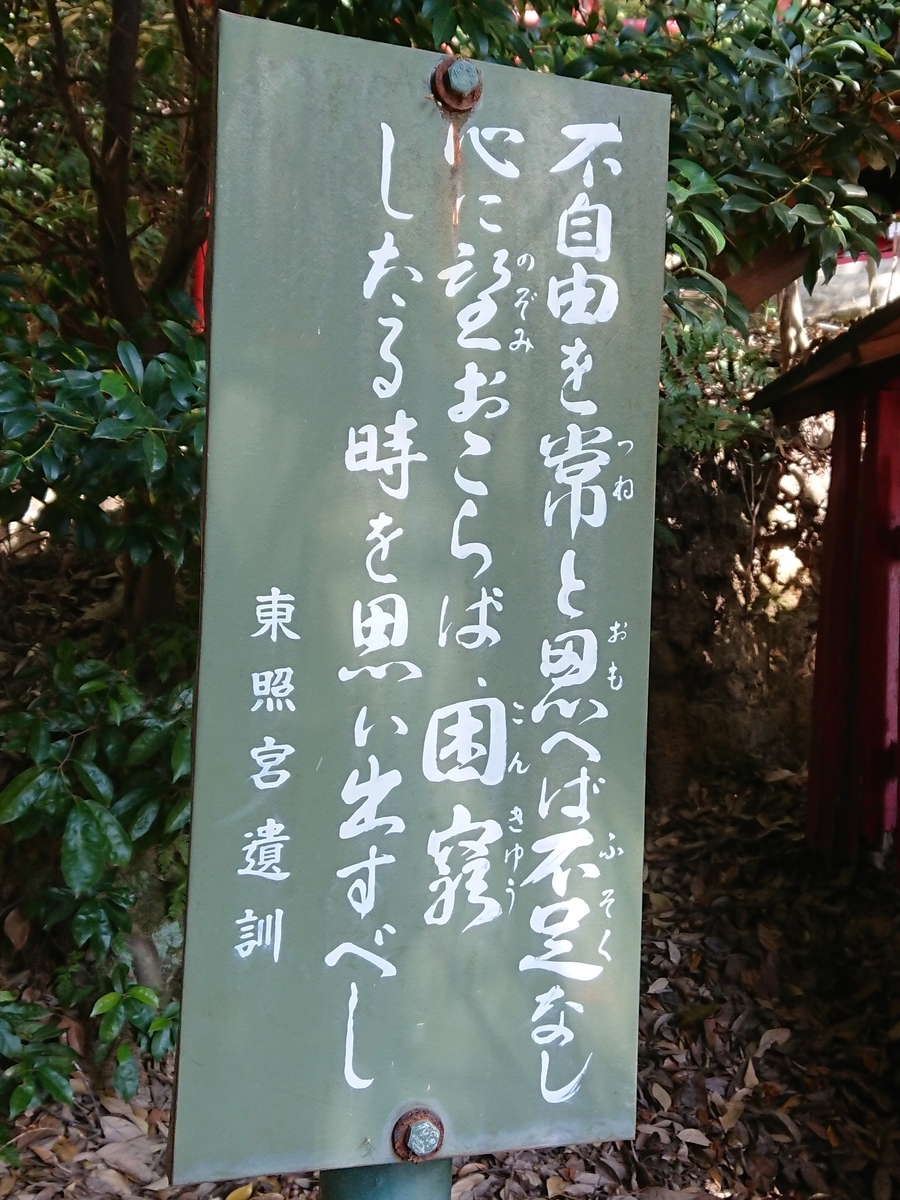 不自由を常と思へば不足なし
つね おも ふそく
心に望おこらば、困窮
のぞみ こんきゆう
したる時を思い出すべし
東照宮遺訓